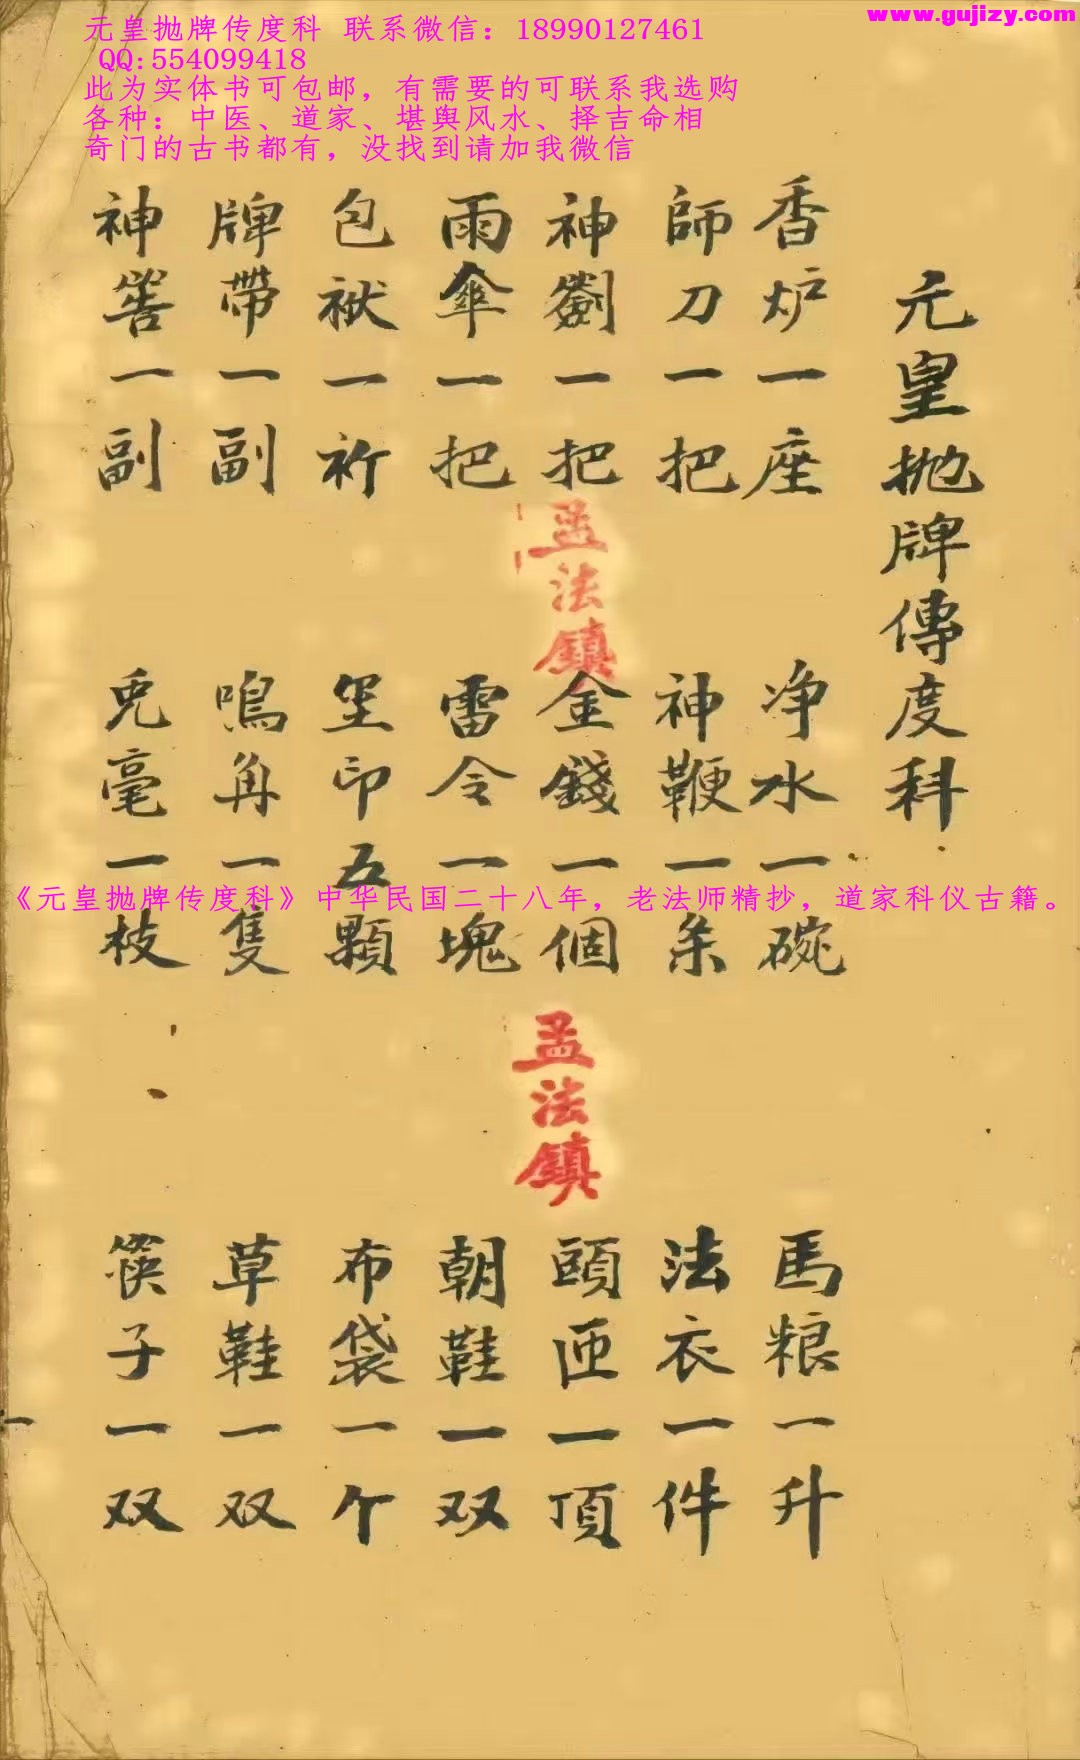 www.gujizy.com
元皇抛牌传度科 联系微信：18990127461
QQ:554099418
此为实体书可包邮，有需要的可联系我选购
各种：中医、道家、堪舆风水、择吉命相
奇门的古书都有，没找到请加我微信
元皇抛牌傳度科
香炉一座 净水一碗 馬粮一升
師刀一把 神鞭一条 法衣一件
神劄一把 金錢一個 頭匝一頂
雨傘一把 雷令一塊 朝鞋一双
包袱一裄 玺印五顆 布袋一个
牌帶一副 鳴角一隻 草鞋一双
神筶一副 兎毫一枝 筷子一双
孟法鎮
孟法鎮
《元皇抛牌传度科》中华民国二十八年，老法师精抄，道家科仪古籍。